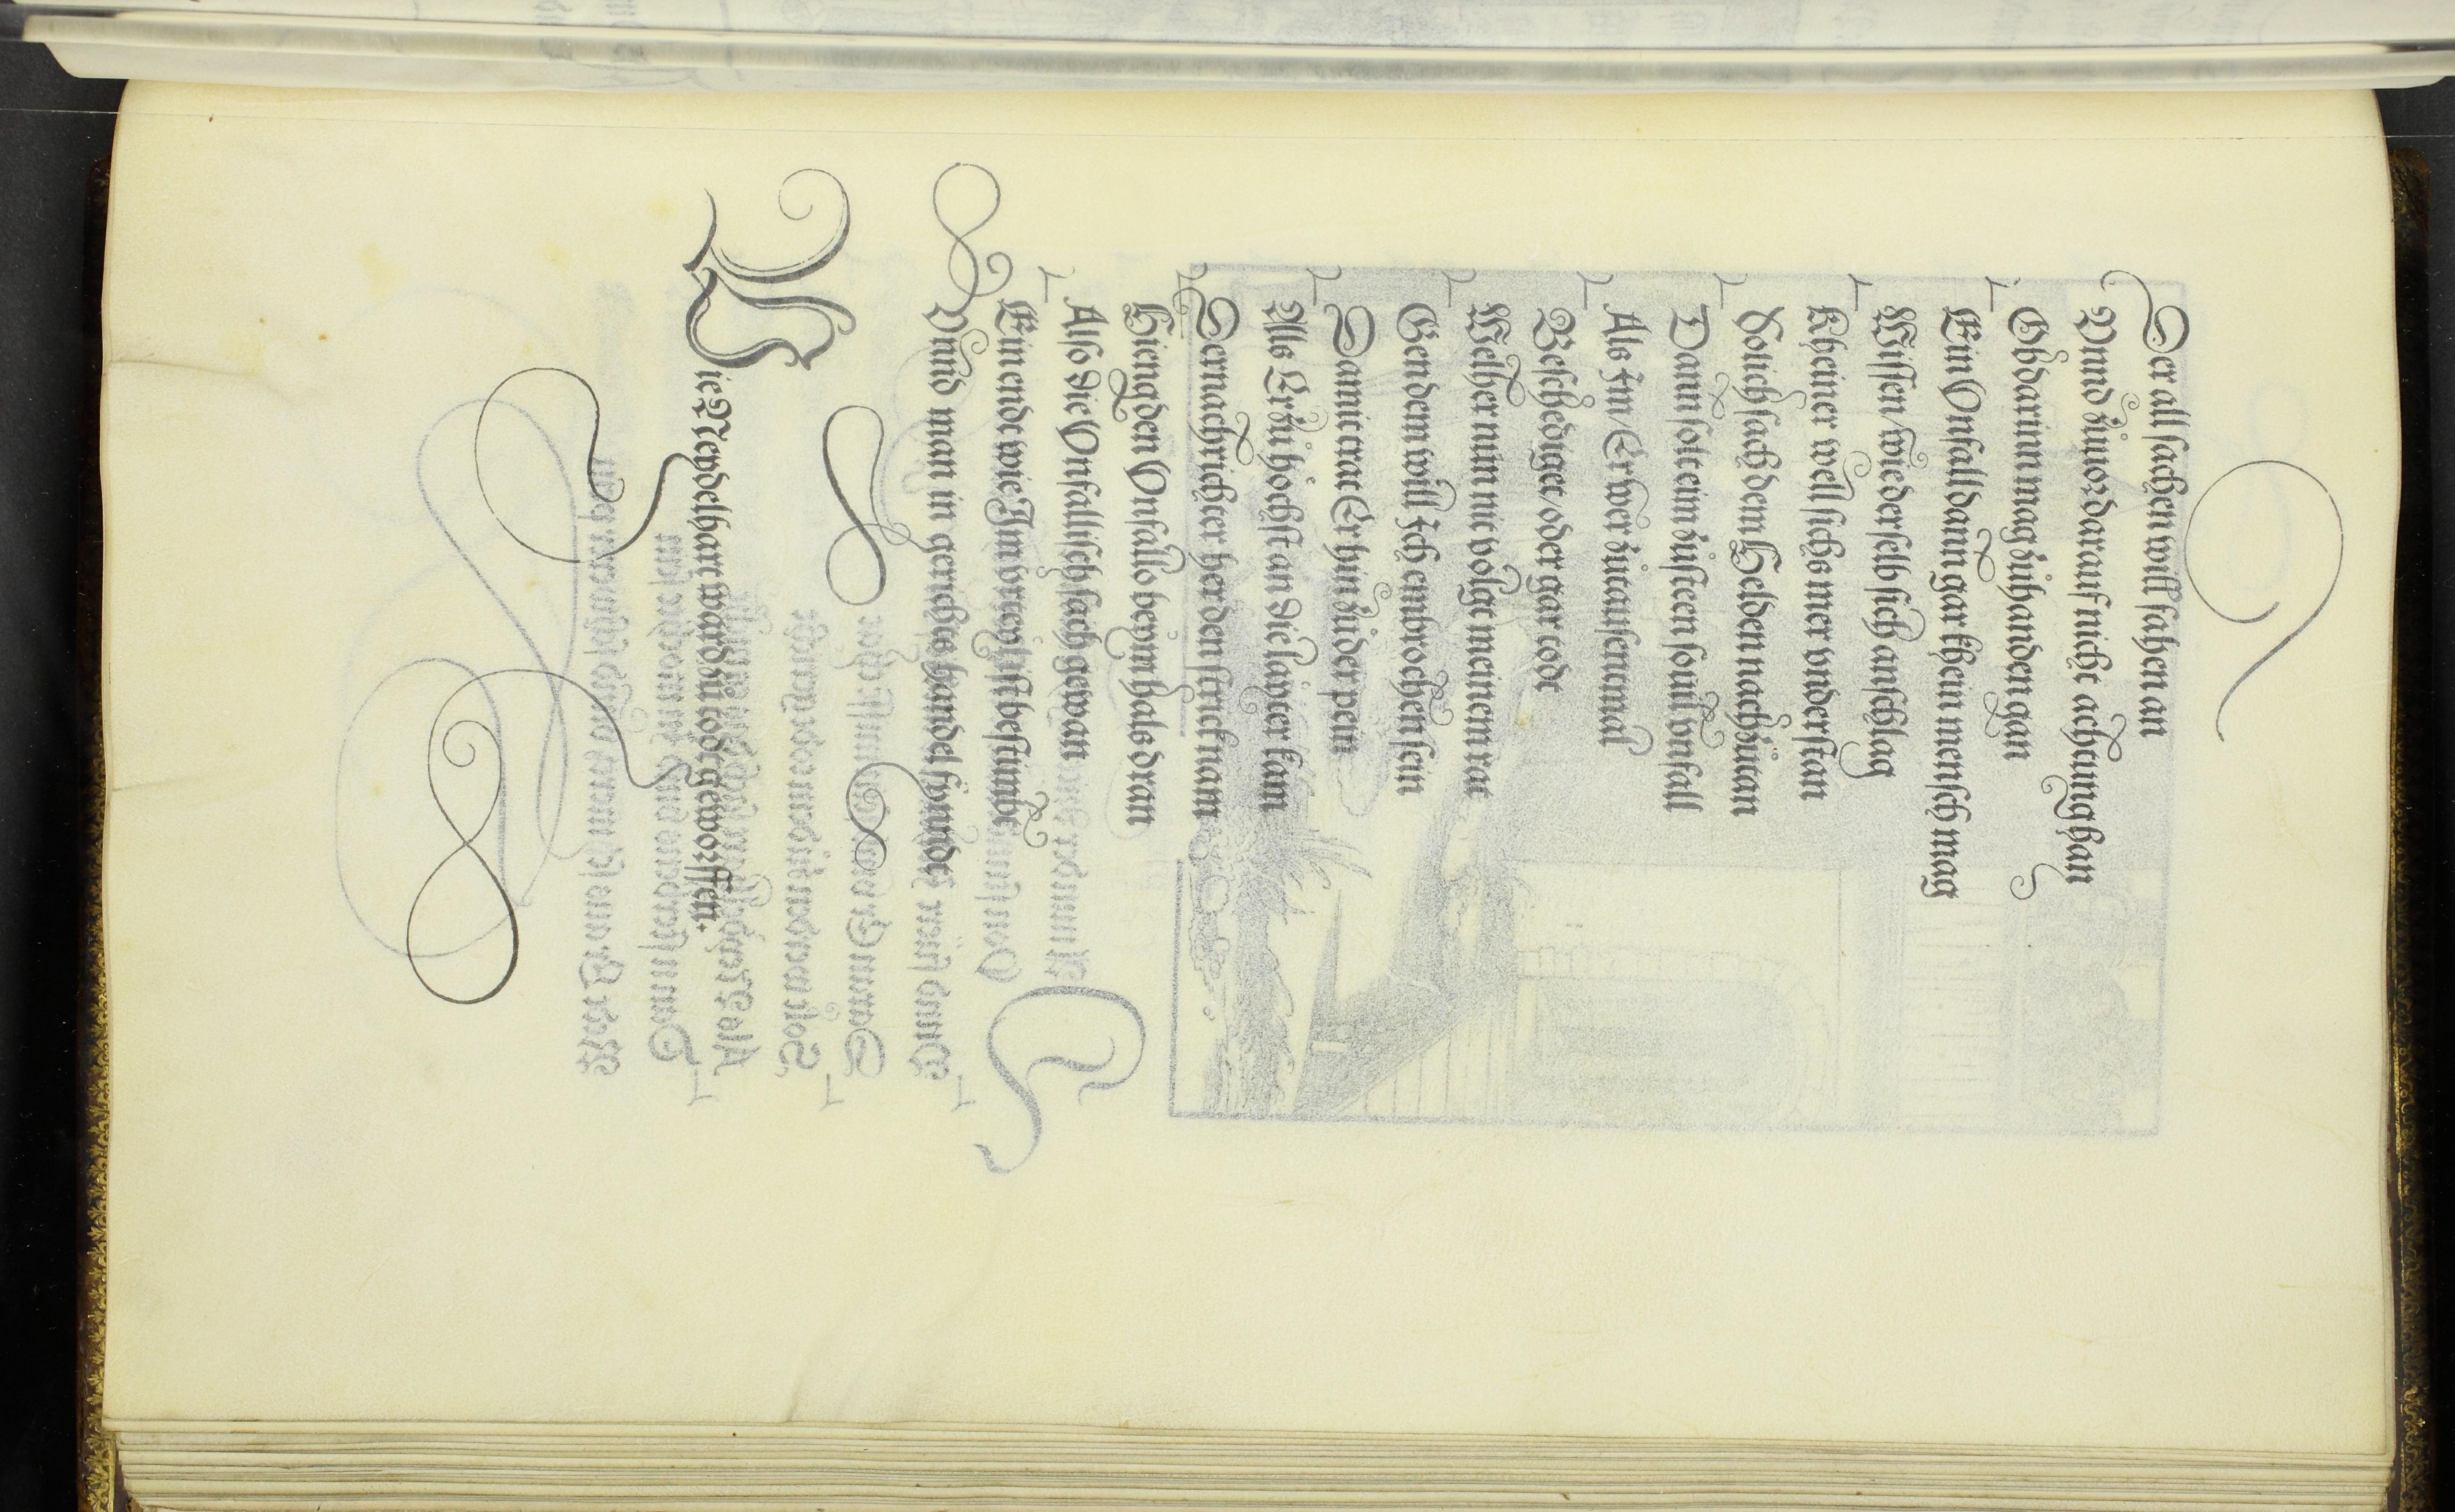 Der all sachen will fahen an
Vnnd zůuor darauf nicht achtung han
Ob darinn mag zůhanden gan
Ein Vnfall dann gar khein mensch mag
Wissen / wie derselb sich anschlag
Kheiner well sichs mer vnderstan
Solich sach dem Helden nachzůtan
Dann solt eim zůsteen souil vnfall
Als Im / Er wer zů tausentmal
Beschediget / oder gar todt
Welher nũn nit volget meinem rat
Gen dem will Ich embrochen sein
Damit trat Er hin zů der pein
Als Er zů höchst an die layter kam
Der nachrichter her den strick nam
Hieng den Vnfallo beym hals dran
Also die Vnfallisch sach gewan
Ein ende wie Im vrteyl ist bestimbt
Vnnd man in gerichts handel fyndt
Die Neydelhart ward zů todt geworffen.